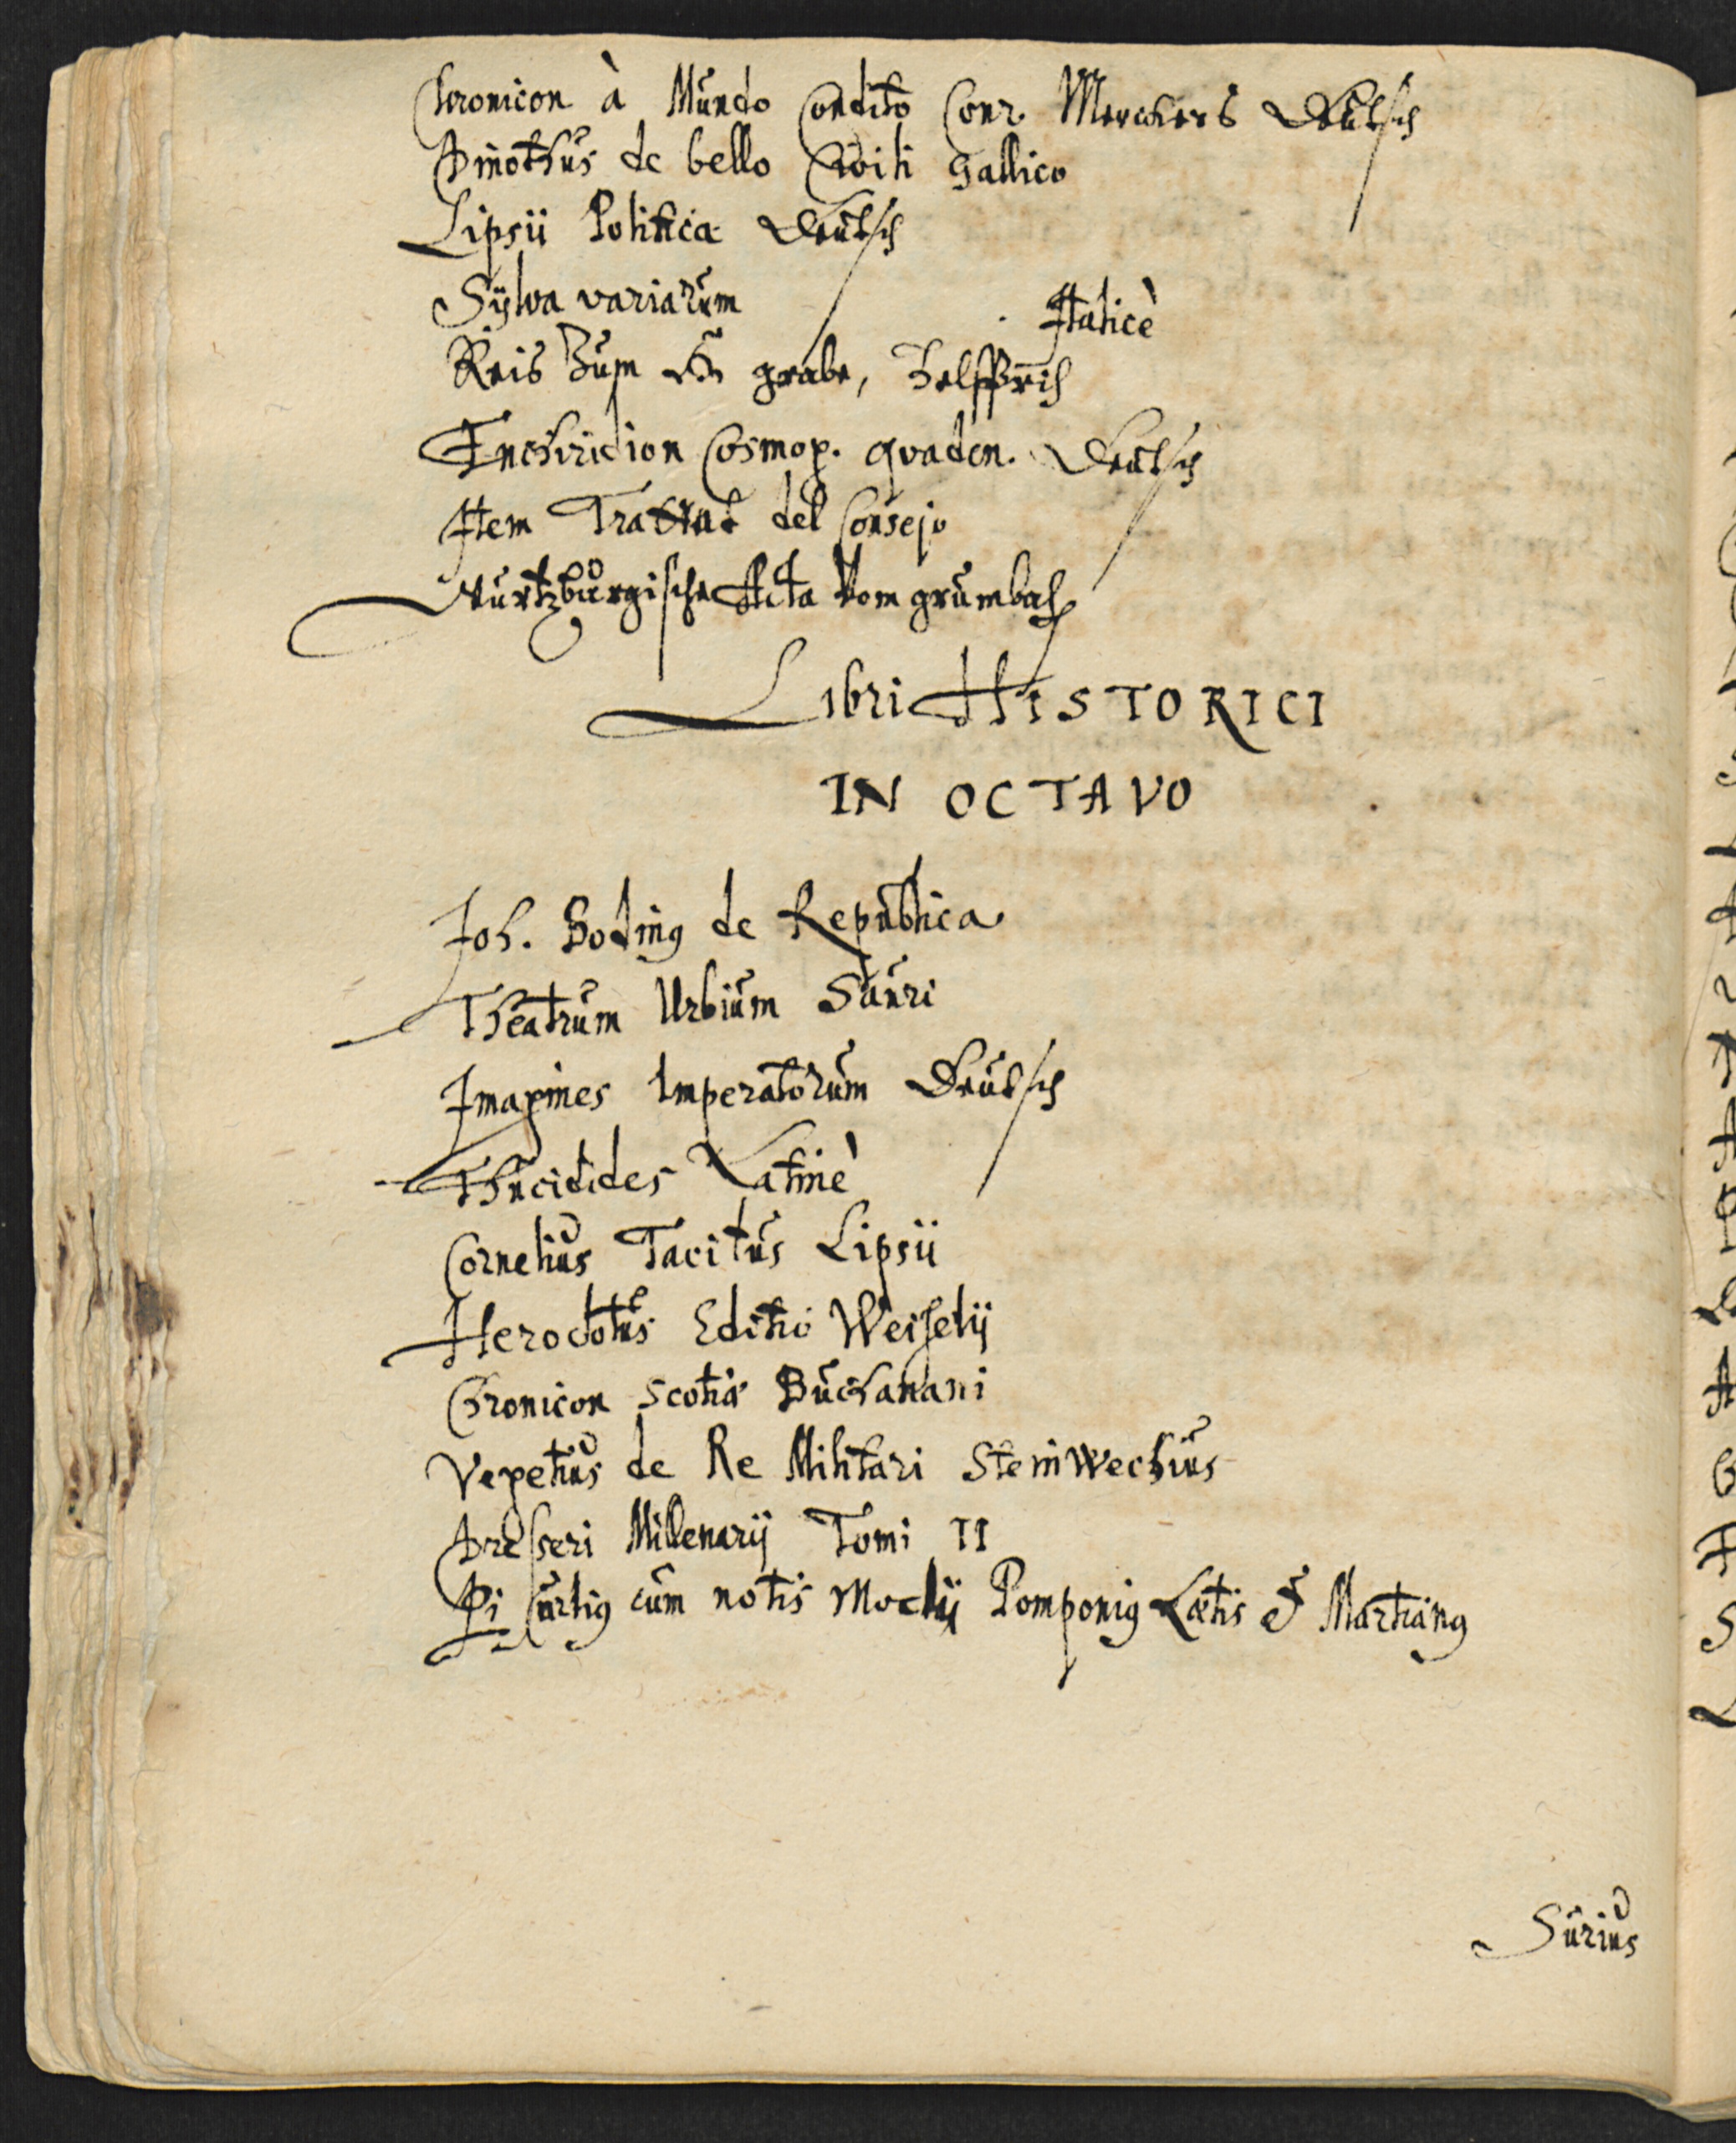 Chronicon à Mundo Condito Conr. Merckers Deutsch
Dinothus de bello Civili Gallico
Lipsii Politica Deutsch
Sylva variarum Italicè
Reis Zum H. grabe, Helffrich
Enchiridion Cosmog. Quaden. Deutsch
Item Tractat del Consejo
Wurtzburgische Acta Vom grumbach
Libri HISTORICI
IN OCTAVO
Joh. Boding de Republica
Theatrum Urbium Sauri
Imagines Imperatorum Deutsch
Thucidides Latinè
Cornelius Tacitus Lipsii
Herodotus Editio Weyselij
Chronicon Scotiæ Buchanani
Vegetius de Re Militari Steinwechius
Dresseri Millenarij Tomi II
Curtig cum notis Modij Pomponig Lætis & Martiang
Surius